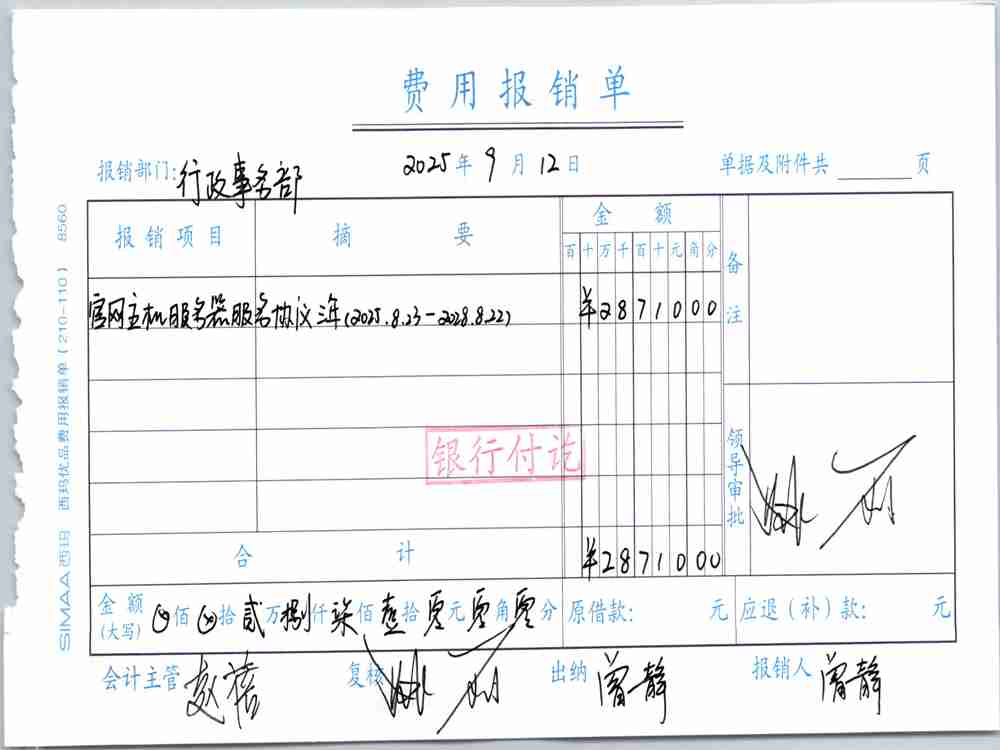 费用报销单
报销部门:行政事务部 2025年9月12日 单据及附件共 页
报销项目 摘要 金额 备注
百十万千百十元角分
官网主机服务器服务协议三年(2025.8.23-2028.8.22) ¥2871000
银行付讫
领导审批
合计 ¥2871000
金额(大写) ⊗佰⊗拾贰万捌仟柒佰壹拾零元零角零分 原借款: 元 应退(补)款: 元
会计主管 赵蓓 复核 出纳 曾静 报销人 曾静
SIMAA西玛 西玛优品费用报销单【210-110】 8560